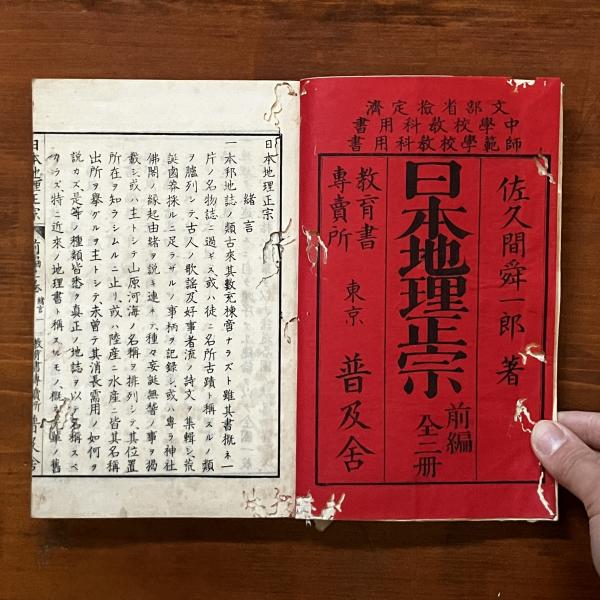 文部省檢定濟
中學校教科用書
師範學校教科用書
佐久間舜一郎 著
日本地理正宗
前編
全二册
教育書
專賣所
東京
普及舍
日本地理正宗
緒言
一本邦地誌ノ類古来其數充棟啻ナラズト雖其書概ネ一
片ノ名物誌ニ過ギズ或ハ徒ニ名所古蹟ト稱スルノ類
ヲ臚列シテ古人ノ歌謡及好事者流ノ詩文ヲ集輯シ荒
誕 採ルニ足ラザルノ事柄ヲ記録シ或ハ專ラ神社
佛閣ノ縁起由緒ヲ説キ連ネテ種々妄誕無稽ノ事ヲ掲
載シ或ハ主トシテ山原河海ノ名稱ヲ排列シテ其位置
所在ヲ知ラシムルニ止リ或ハ陸産ニ水産ニ皆其名稱
出所ヲ擧グルヲ主トシテ未曾テ其消長需用ノ如何ヲ
説カズ是等ノ種類皆悉ク真正ノ地誌ヲ以テ名稱スベ
カラズ特ニ近来ノ地理書ト稱スルモノ概 單ニ舊
日本地理正宗 前編 緒言 一 教育書專賣所普及舍